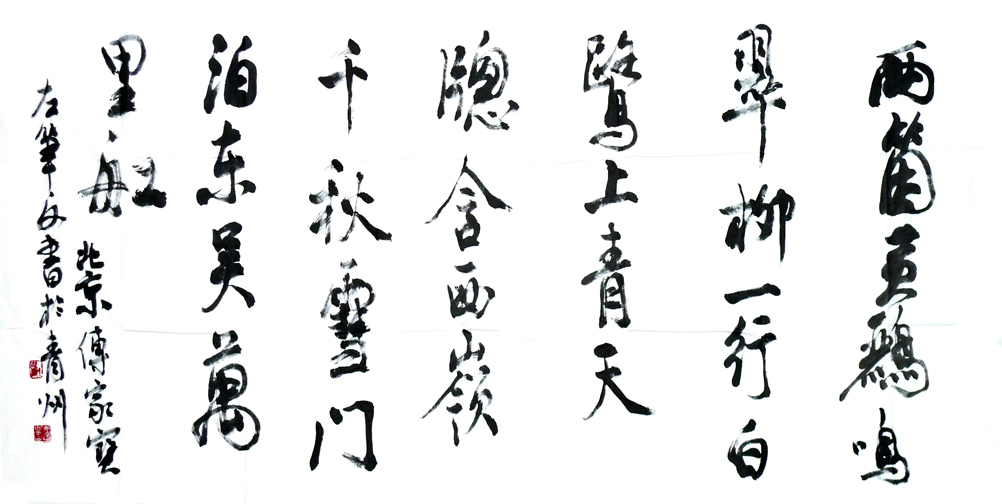 兩箇黄鸝鳴
翠柳一行白
鷺上青天
牕含西嶺
千秋雪门
泊东吴萬
里舡
北京傅家寳
左筆反書於青州